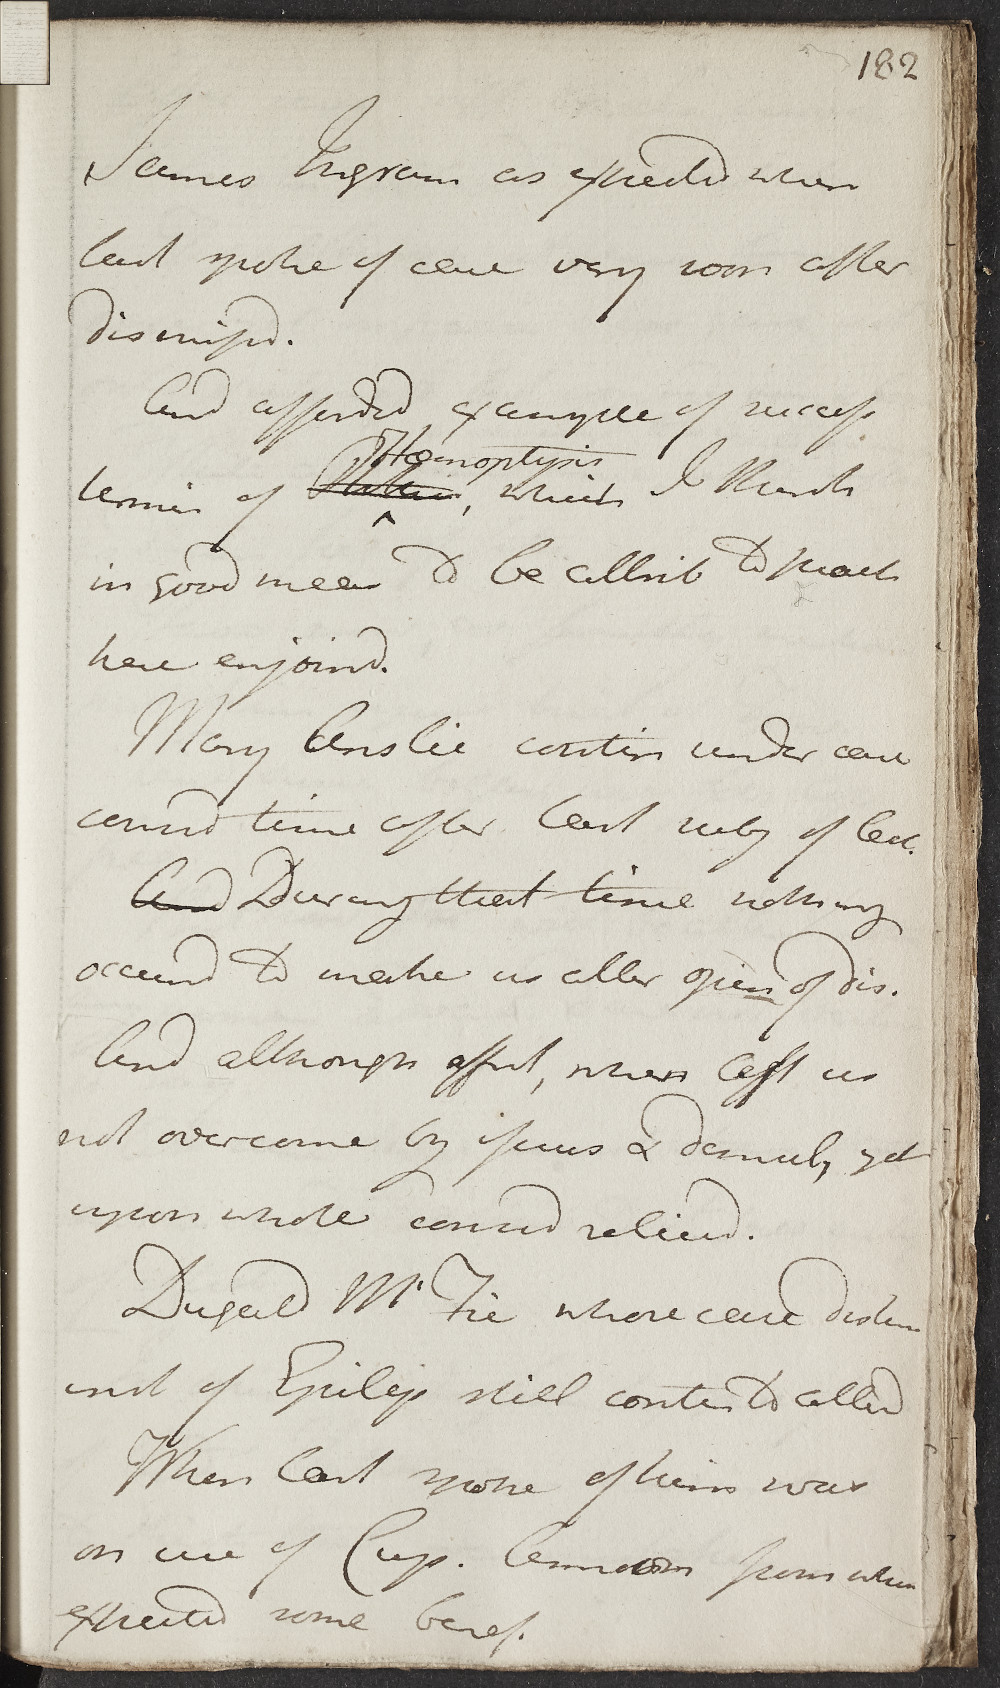 182
James Ingram as expected when
last spoke of case very soon after
dismissd.
And afforded example of success
Hæmoptysis
termin of , which I think
in good meas to be attrib to pract
here enjoind.
Mary Anslie contin under care
consid time after last subj of lect.
And During that time nothing
occurd to make us alter opin of dis.
And although affect, when left us
not overcome by issues & demulc, yet
upon whole consid relievd.
Dugald Mc Fie whose case distin
inst of Epileps still contin to attend
When last spoke of him was
on use of Cup. Ammon from when
expected some benef.